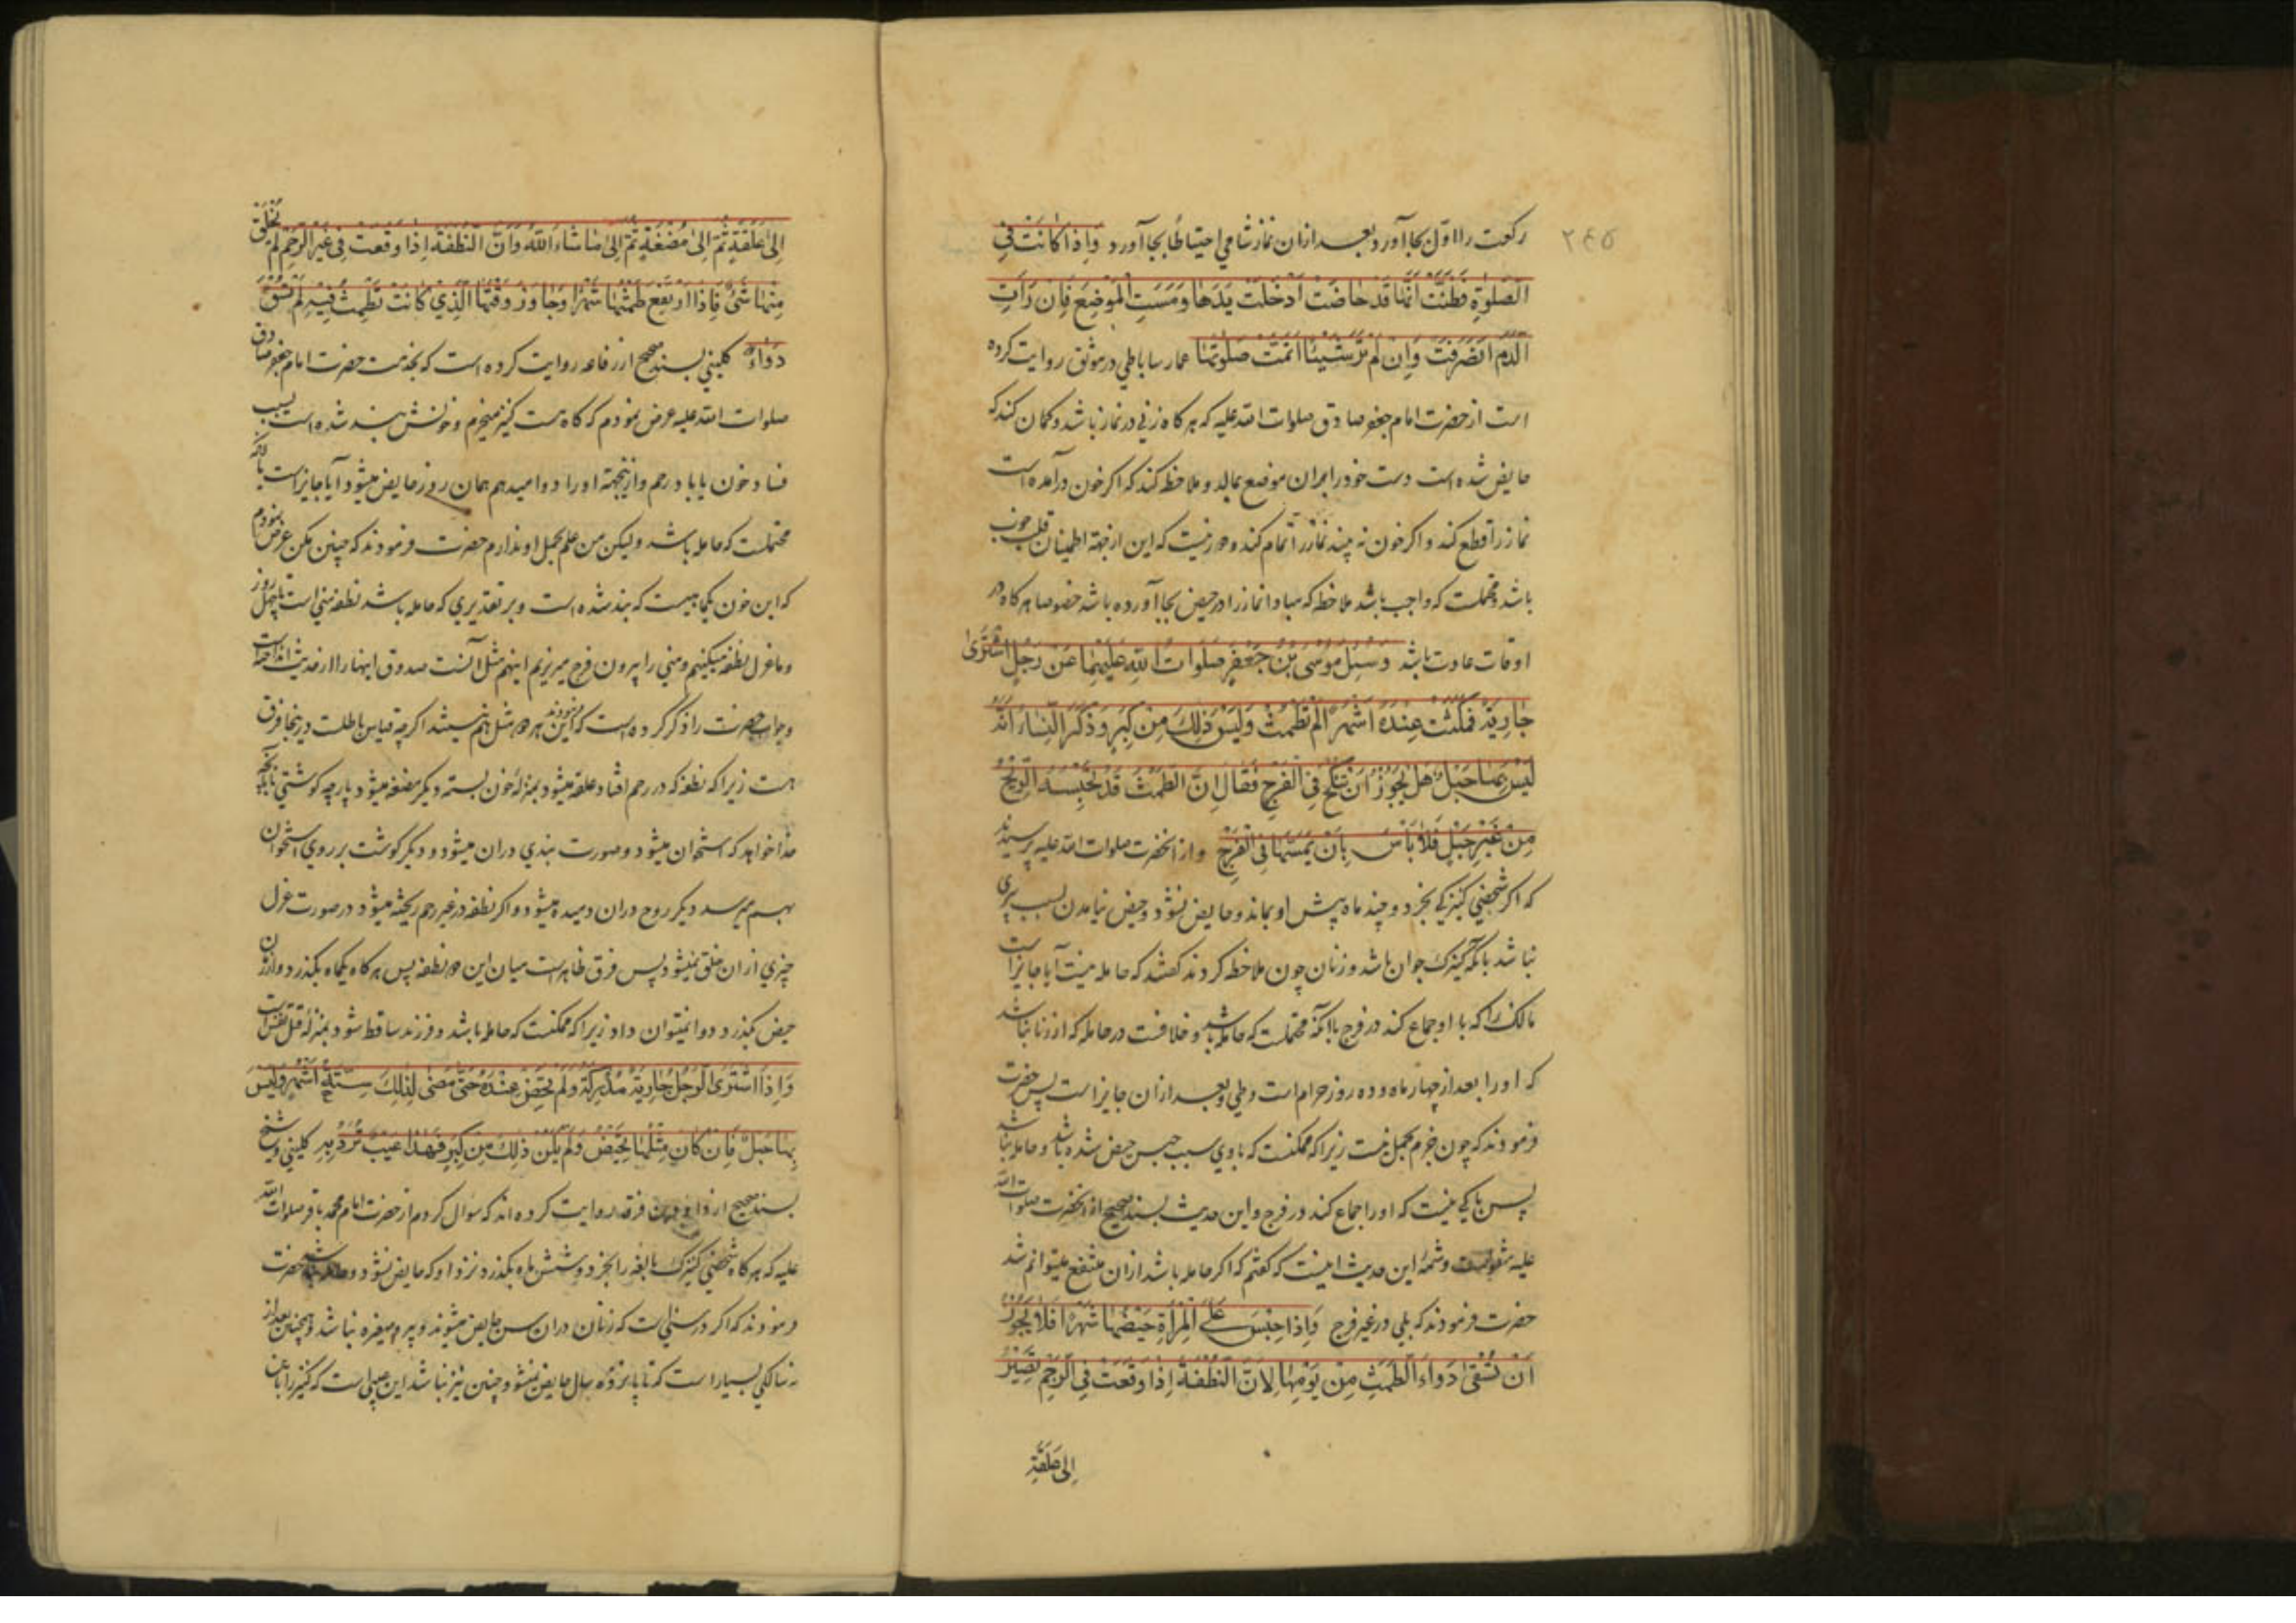 ۲۴۵
ركعت را اوّل بجا آورد و بعد ازان نماز شامي احتياطاً بجا آورد وَاِذا كانَتْ فِي
الصَّلوٰةِ فَظَنَّتْ اَنَّها قَدْ حاضَتْ اَدْخَلَتْ يَدَها وَمَسَّتِ الْمَوْضِعَ فَاِنْ رَاَتِ
الدَّمَ انْصَرَفَتْ وَاِنْ لَمْ تَرَ شَيْئًا اَتَمَّتْ صَلوٰتَها عمار ساباطي در موثق روايت كرده
است از حضرت امام جعفر صادق صلوات الله عليه كه هر كاه زني در نماز باشد و كمان كند كه
حايض شده است دست خود را بران موضع بمالد و ملاحظه كند كه اكر خون درآمده است
نماز را قطع كند و اكر خون نه بيند نماز را تمام كند و دور نيست كه اين از جهة اطمينان قلب خوب
باشد و محتملست كه واجب باشد ملاحظه كه مبادا نماز را در حيض بجا آورده باشد خصوصا هر كاه در
اوقات عادت باشد وَسُئِلَ مُوسَى بْنُ جَعْفَرٍ صَلَواتُ اللهِ عَلَيْهِما عَنْ رَجُلٍ اشْتَرىٰ
جارِيَةً فَمَكَثَتْ عِنْدَهُ اَشْهُرًا لَمْ تَطْمَثْ وَلَيْسَ ذٰلِكَ مِنْ كِبَرٍ وَذَكَرَ النِّساءُ اَنَّهُ
لَيْسَ بِها حَبَلٌ هَلْ يَجُوزُ اَنْ تُنْكَحَ فِي الْفَرْجِ فَقالَ اِنَّ الطَّمْثَ قَدْ تَحْبِسُهُ الرِّيحُ
مِنْ غَيْرِ حَبَلٍ فَلا بَاْسَ بِاَنْ يَمَسَّها فِي الْفَرْجِ و از انحضرت صلوات الله عليه پرسيدند
كه اكر شخصي كنيزكي بخرد و چند ماه پيش او بماند و حايض نشود و حيض نيامدن بسبب پيري
نباشد بانكه كنيزك جوان باشد و زنان چون ملاحظه كردند كفتند كه حامله نيست آيا جايز است
مالك را كه با او جماع كند در فرج با انكه محتملست كه حامله باشد و خلافست در حامله كه از زنا نباشد
كه او را بعد از چهار ماه و ده روز حرام است وطي و بعد ازان جايز است پس حضرت
فرمودند كه چون جزم بحمل نيست زيرا كه ممكنست كه بادي سبب حبس حيض شده باشد و حامله نباشد
پس باكي نيست كه او را جماع كند در فرج و اين حديث بسند صحيح از انحضرت صلوات الله
عليه منقولست و تتمهٔ اين حديث اينست كه كفتم كه اكر حامله باشد ازان منتفع ميتوانم شد
حضرت فرمودند كه بلي در غير فرج وَاِذا احْتُبِسَ عَلَى الْمَرْاَةِ حَيْضُها شَهْرًا فَلا يَجُوزُ
اَنْ تُسْقىٰ دَواءَ الطَّمْثِ مِنْ يَوْمِها لِاَنَّ النُّطْفَةَ اِذا وَقَعَتْ فِي الرَّحِمِ تَصِيرُ
اِلىٰ عَلَقَةٍ
اِلىٰ عَلَقَةٍ ثُمَّ اِلىٰ مُضْغَةٍ ثُمَّ اِلىٰ ما شاءَ اللهُ وَاَنَّ النُّطْفَةَ اِذا وَقَعَتْ فِي غَيْرِ الرَّحِمِ لَمْ يُخْلَقْ
مِنْها شَيْءٌ فَاِذَا ارْتَفَعَ طَمْثُها شَهْرًا وَجاوَزَ وَقْتُهَا الَّذِي كانَتْ تَطْمَثُ فِيهِ لَمْ تُسْقَ
دَواءً كليني بسند صحيح از رفاعه روايت كرده است كه بخدمت حضرت امام جعفر صادق
صلوات الله عليه عرض نمودم كه كاه هست كنيز ميخرم و خونش بند شده است بسبب
فساد خون يا باد رحم و ازينجهة او را دوا ميدهم همان روز حايض ميشود آيا جايز است با انكه
محتملست كه حامله باشد وليكن من علم بحمل او ندارم حضرت فرمودند كه چنين مكن عرض نمودم
كه اين خون يكماهيست كه بند شده است و بر تقديري كه حامله باشد نطفه مني است تا چهل روز
و ما عزل نطفه ميكنيم و مني را بيرون فرج ميريزيم اينهم مثل آنست صدوق اينها را از حديث انداخته است
و جواب حضرت را ذكر كرده است كه فرمودند اين هر دو مثل هم نيستند اكرچه قياس باطلست درينجا فرق
هست زيرا كه نطفه كه در رحم افتاد علقه ميشود بمنزلهٔ خون بسته و ديكر مضغه ميشود پارچه كوشتي تا بآنچه
خدا خواهد كه استخوان ميشود و صورت بندي دران ميشود و ديكر كوشت بر روي استخوان
بهم ميرسد ديكر روح دران دميده ميشود و اكر نطفه در غير رحم ريخته ميشود در صورت عزل
چيزي ازان خلق نميشود پس فرق ظاهر است ميان اين دو نطفه پس هر كاه يكماه بكذرد و از زن
حيض بكذرد دوا نميتوان داد زيرا كه ممكنست كه حامله باشد و فرزند ساقط شود بمنزلهٔ قتل نفس است
وَاِذَا اشْتَرَى الرَّجُلُ جارِيَةً مُدْرِكَةً وَلَمْ تَحِضْ عِنْدَهُ حَتّىٰ مَضىٰ لِذٰلِكَ سِتَّةُ اَشْهُرٍ وَلَيْسَ
بِها حَبَلٌ فَاِنْ كانَ مِثْلُها تَحِيضُ وَلَمْ يَكُنْ ذٰلِكَ مِنْ كِبَرٍ فَهٰذا عَيْبٌ تُرَدُّ بِهِ كليني و شيخ
بسند صحيح از داود بن فرقد روايت كرده اند كه سؤال كردم از حضرت امام محمد باقر صلوات الله
عليه كه هر كاه شخصي كنيزك بالغه را بخرد و شش ماه بكذرد نزد او كه حايض نشود و حضرت
فرمودند كه اكر در سنّي است كه زنان دران سن حايض ميشوند و پير و صغيره نباشد و همچنين بعد از
نه سالكي بسيار است كه تا پانزده سال حايض نميشود و چنين نيز نباشد اين عيبي است كه كنيز را بان